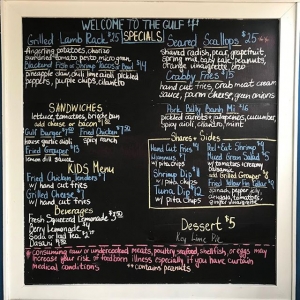 WELCOME TO THE GULF
SPECIALS
Grilled Lamb Rack $25
fingerling potatoes, chorizo
sundried tomato pesto micro green
Blackened Fish or Shrimp Tacos
pineapple slaw, chili lime aioli, pickled
peppers, purple chips, cilantro
Seared Scallops $25
shaved radish, pear, grapefruit,
spring mix, baby kale, peanuts,
orange vinaigrette, orzo
Crabby Fries $15
hand cut fries, crab meat cream
sauce, parm cheese, green onions
Pork Belly Banh Mi $16
pickled carrots + jalapenos, cucumber,
spicy aioli, cilantro, mint
SANDWICHES
lettuce, tomatoes, brughetti bun
add cheese or bacon
Gulf Burger
house garlic aioli
Fried Chicken
spicy ranch
Fried Grouper
lemon dill sauce
KIDS Menu
Fried Chicken Tenders
w/ hand cut fries
Fried Grouper
w/ hand cut fries
Beverages
Fresh Squeezed Lemonade
Berry Lemonade
Soda or Iced Tea
Dasani
Shares + Sides
Hand Cut Fries
Hummus
w/ pita chips
Shrimp Dip
w/ pita chips
Tuna Dip
w/ pita chips
Peel + Eat Shrimp
Mixed Green Salad
w/ tomatoes creamy
balsamic
add Grilled Grouper
Fried Yellow Fin Tuna
Dessert $5
Key Lime Pie
*consuming raw or undercooked meats, poultry, seafood, shellfish, or eggs may
increase your risk of foodborn illness especially if you have certain
medical conditions
**contains peanuts